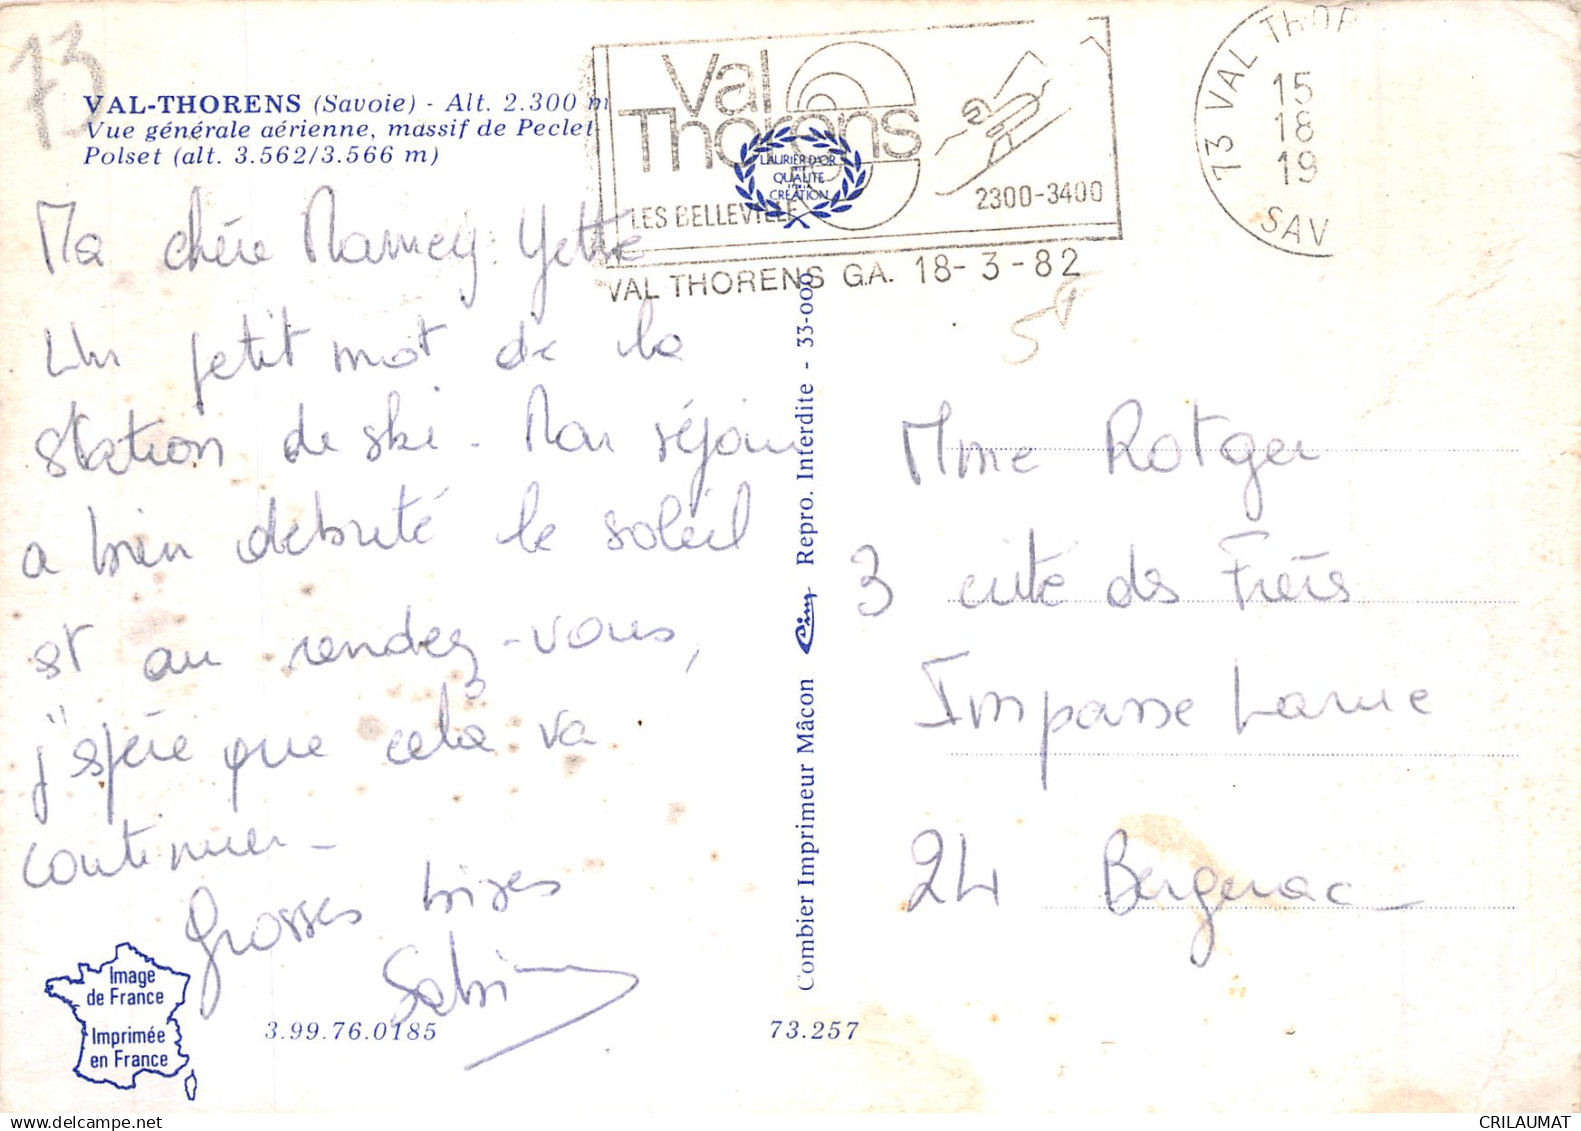 73
VAL-THORENS (Savoie) - Alt. 2.300 m
Vue générale aérienne, massif de Peclet-
Polset (alt. 3.562/3.566 m)
Val
Thorens
LES BELLEVILLE
2300-3400
VAL THORENS G.A. 18-3-82
LAURIER D'OR
DE LA
QUALITÉ
CRÉATION
73 VAL THOR
15
18
19
SAV
Ma chère Mamey Yette
Un petit mot de la
station de ski. Mon séjour
a bien debuté le soleil
est au rendez-vous,
j'espère que cela va
continuer -
Grosses bises
Sabri
Image
de France
Imprimée
en France
3.99.76.0185
73.257
Combier Imprimeur Mâcon Cim Repro. Interdite - 33-000
Mme Rotger
3 cité des Frères
Impasse Larue
24 Bergerac -
CRILAUMAT